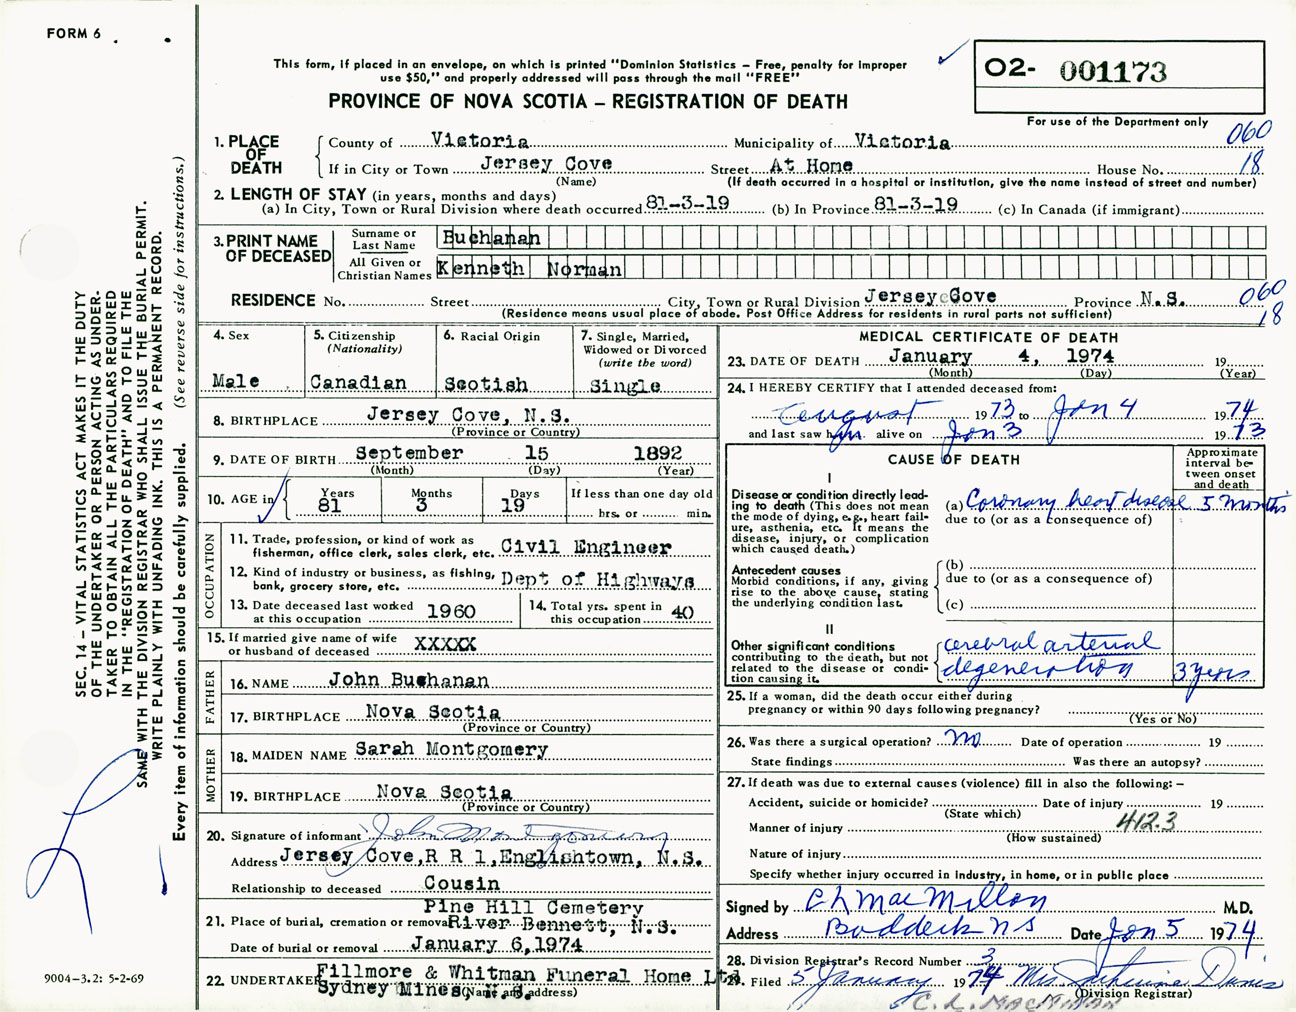 FORM 6
This form, if placed in an envelope, on which is printed "Dominion Statistics – Free, penalty for improper
use $50," and properly addressed will pass through the mail "FREE"
PROVINCE OF NOVA SCOTIA – REGISTRATION OF DEATH
O2- 001173
For use of the Department only
1. PLACE OF DEATH
County of Victoria Municipality of Victoria 060
If in City or Town Jersey Cove Street At Home House No. 18
(Name) (If death occurred in a hospital or institution, give the name instead of street and number)
2. LENGTH OF STAY (in years, months and days)
(a) In City, Town or Rural Division where death occurred 81-3-19 (b) In Province 81-3-19 (c) In Canada (if immigrant)
3. PRINT NAME OF DECEASED
Surname or Last Name Buchanan
All Given or Christian Names Kenneth Norman
RESIDENCE No. Street City, Town or Rural Division Jersey Cove Province N.S. 060
(Residence means usual place of abode. Post Office Address for residents in rural parts not sufficient) 18
4. Sex
Male
5. Citizenship
(Nationality)
Canadian
6. Racial Origin
Scotish
7. Single, Married,
Widowed or Divorced
(write the word)
Single
8. BIRTHPLACE Jersey Cove, N.S.
(Province or Country)
9. DATE OF BIRTH September 15 1892
(Month) (Day) (Year)
10. AGE in
Years Months Days If less than one day old
81 3 19 hrs. or min.
OCCUPATION
11. Trade, profession, or kind of work as
fisherman, office clerk, sales clerk, etc. Civil Engineer
12. Kind of industry or business, as fishing,
bank, grocery store, etc. Dept of Highways
13. Date deceased last worked
at this occupation 1960
14. Total yrs. spent in
this occupation 40
15. If married give name of wife
or husband of deceased XXXXX
FATHER
16. NAME John Buchanan
17. BIRTHPLACE Nova Scotia
(Province or Country)
MOTHER
18. MAIDEN NAME Sarah Montgomery
19. BIRTHPLACE Nova Scotia
(Province or Country)
20. Signature of informant John Montgomery
Address Jersey Cove, R R 1, Englishtown, N.S.
Relationship to deceased Cousin
Pine Hill Cemetery
21. Place of burial, cremation or removal River Bennett, N.S.
Date of burial or removal January 6,1974
22. UNDERTAKER Fillmore & Whitman Funeral Home Ltd
Sydney Mines, N.S.
(Name and address)
MEDICAL CERTIFICATE OF DEATH
23. DATE OF DEATH January 4, 1974 19
(Month) (Day) (Year)
24. I HEREBY CERTIFY that I attended deceased from:
August 1973 to Jan 4 1974
and last saw him alive on Jan 3 1973
CAUSE OF DEATH
Approximate
interval be-
tween onset
and death
I
Disease or condition directly lead-
ing to death (This does not mean
the mode of dying, e.g., heart fail-
ure, asthenia, etc. It means the
disease, injury, or complication
which caused death.)
(a) Coronary heart disease 5 months
due to (or as a consequence of)
Antecedent causes
Morbid conditions, if any, giving
rise to the above cause, stating
the underlying condition last.
(b)
due to (or as a consequence of)
(c)
II
Other significant conditions
contributing to the death, but not
related to the disease or condi-
tion causing it.
cerebral arterial
degeneration 3 years
25. If a woman, did the death occur either during
pregnancy or within 90 days following pregnancy?
(Yes or No)
26. Was there a surgical operation? no Date of operation 19
State findings Was there an autopsy?
27. If death was due to external causes (violence) fill in also the following: –
Accident, suicide or homicide? Date of injury 19
(State which)
412.3
Manner of injury
(How sustained)
Nature of injury
Specify whether injury occurred in industry, in home, or in public place
Signed by C L MacMillan M.D.
Address Baddeck NS Date Jan 5 1974
28. Division Registrar's Record Number 3
29. Filed 5 January 1974 Mrs
(Division Registrar)
C. L. MacMillan
SEC. 14 – VITAL STATISTICS ACT MAKES IT THE DUTY
OF THE UNDERTAKER OR PERSON ACTING AS UNDER-
TAKER TO OBTAIN ALL THE PARTICULARS REQUIRED
IN THE "REGISTRATION OF DEATH" AND TO FILE THE
SAME WITH THE DIVISION REGISTRAR WHO SHALL ISSUE THE BURIAL PERMIT.
WRITE PLAINLY WITH UNFADING INK. THIS IS A PERMANENT RECORD.
Every item of information should be carefully supplied. (See reverse side for instructions.)
9004-3.2: 5-2-69